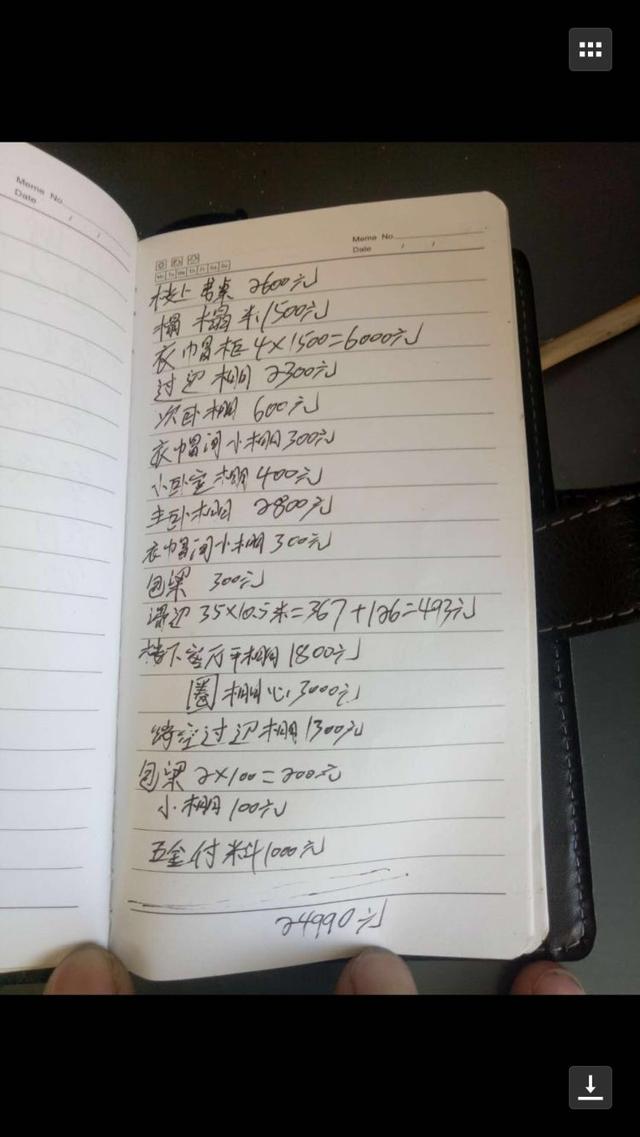 Memo No.
Date / /
Memo No.
Date / /
楼上书桌 2600元
榻榻米 1500元
衣帽柜 4×1500=6000元
过边棚 2300元
次卧棚 600元
衣帽间小棚 300元
小卧室棚 400元
主卧棚 2800元
衣帽间小棚 300元
包梁 300元
边 35×10.5米=367+126=493元
楼下客厅平棚 1800元
圈棚心 3000元
过边棚 1300元
包梁 2×100=200元
小棚 100元
五金付料 1000元
24990元